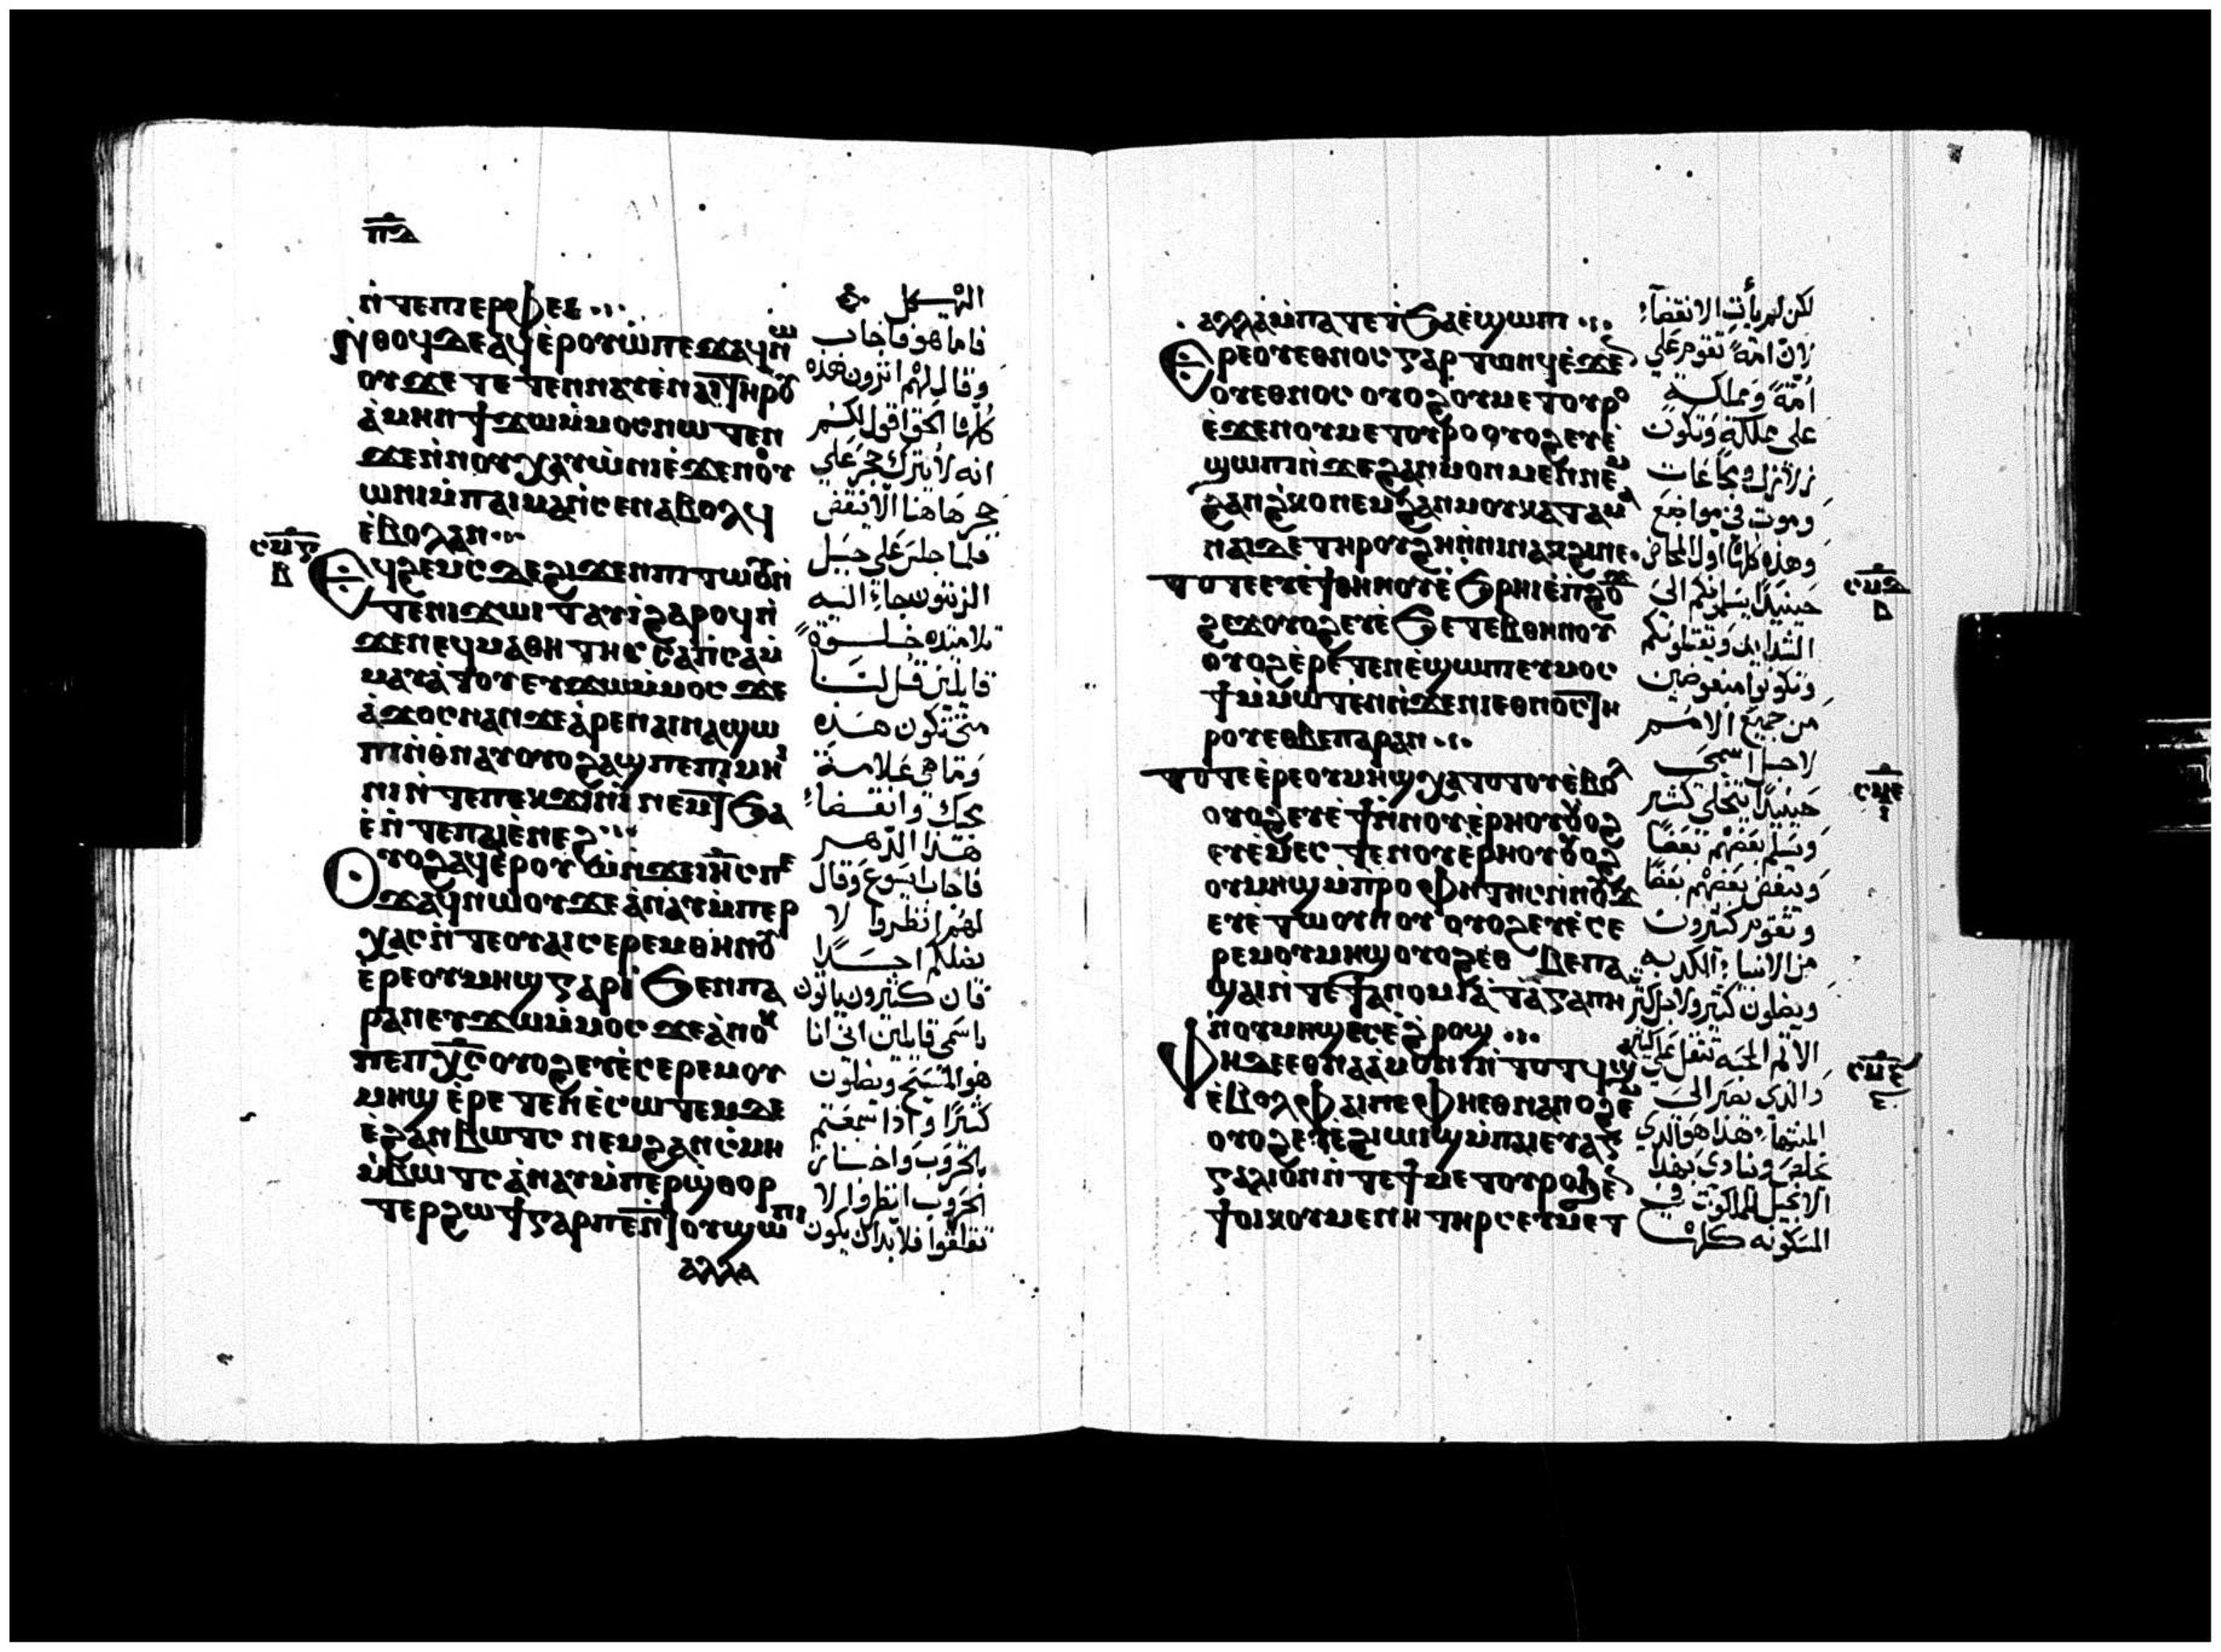 ⲡⲇ
ⲛ̀ⲧⲉⲡⲓⲉⲣⲫⲉⲓ
ⲛ̀ⲑⲟϥⲇⲉⲁϥⲉ̀ⲣⲟⲩⲱ̀ⲡⲉϫⲁϥⲛⲱ
ⲟⲩϫⲉⲧⲉⲧⲉⲛⲛⲁⲩⲉ̀ⲛⲁⲓⲧⲏⲣⲟⲩ
ⲁ̀ⲙⲏⲛϯϫⲱⲙ̀ⲙⲟⲥⲛⲱⲧⲉⲛ
ϫⲉⲛ̀ⲛⲟⲩⲭⲁⲩⲱ̀ⲛⲓⲉ̀ϫⲉⲛⲟⲩ
ⲱⲛⲓⲙ̀ⲡⲁⲓⲙⲁⲛ̀ⲥⲉⲛⲁⲃⲟⲗϥ
ⲉ̀ⲃⲟⲗⲁⲛ
ⲥⲙⲅ
ⲃ
ⲉϥϩⲉⲙⲥⲇⲉϩⲓϫⲉⲛⲡⲓⲧⲱⲟⲩⲛ̀
ⲧⲉⲛⲓϫⲱⲓⲧⲁⲩⲓ̀ϩⲁⲣⲟϥⲛ̀
ϫⲉⲛⲉϥⲙⲁⲑⲏⲧⲏⲥⲥⲁⲡ̀ⲥⲁⲙ̀
ⲙⲁⲩⲁ̀ⲧⲟⲩⲉⲩϫⲱⲙ̀ⲙⲟⲥϫⲉ
ⲁ̀ϫⲟⲥⲛⲁⲛϫⲉⲁ̀ⲣⲉⲛⲁⲓⲛⲁϣⲱ
ⲡⲓⲛ̀ⲑⲛⲁⲩⲟⲩⲟϩⲁϣⲡⲉⲡⲓⲙⲏⲓ
ⲛⲓⲛ̀ⲧⲉⲡⲉⲕϫⲓⲛⲓ̀ⲛⲉⲙⲡϧⲁ
ⲉ̀ⲛ̀ⲧⲉⲡⲁⲓⲉ̀ⲛⲉϩ
ⲟⲩⲟϩⲁϥⲉ̀ⲣⲟⲩⲱ̀ⲛ̀ϫⲉⲓⲏⲥⲡⲉ
ϫⲁϥⲛⲱⲟⲩϫⲉⲁ̀ⲛⲁⲩⲙ̀ⲡⲉⲣ
ⲭⲁⲥⲛ̀ⲧⲉⲟⲩⲁⲓⲥⲉⲣⲉⲙⲑⲏⲛⲟⲩ
ⲉ̀ⲣⲉⲟⲩⲙⲏϣⲅⲁⲣⲓ̀ϧⲉⲛⲡⲁ
ⲣⲁⲛⲉⲩϫⲱⲙ̀ⲙⲟⲥϫⲉⲁ̀ⲛⲟⲕ
ⲡⲉⲡⲭⲥⲟⲩⲟϩⲉⲩⲉ̀ⲥⲉⲣⲉⲙⲟⲩ
ⲙⲏϣⲉ̀ⲣⲉⲧⲉⲛⲉ̀ⲥⲱⲧⲉⲙⲇⲉ
ⲉ̀ϩⲁⲛⲃⲱⲧⲥⲛⲉⲙϩⲁⲛⲥⲙⲏ
ⲙ̀ⲃⲱⲧⲥⲁ̀ⲛⲁⲩⲙ̀ⲡⲉⲣϣ̀ⲑⲟⲣ
ⲧⲉⲣϩⲱϯⲅⲁⲣⲡⲉⲛ̀ⲧⲟⲩϣⲱⲡⲓ
ⲁⲗⲗⲁ
الهيكل
فاما هو فاجاب
وقال لهم اترون هذه
كلها الحق اقول لكم
انه لا يترك حجر علي
حجر هاهنا الا ينقض
فلما جلس علي جبل
الزيتون جاء اليه
تلاميذه خلوة
قايلين قل لنا
متي تكون هذه
وما هي علامة
مجيك وانقضاء
هذا الدهر
فاجاب ايسوع وقال
لهم انظروا لا
يضلكم احدًا
فان كثيرون ياتون
باسمي قايلين اني انا
هو المسيح ويضلون
كثيرًا واذا سمعتم
بالحروب واخبار
الحروب انظروا لا
تقلقوا فلا بد ان يكون
ⲁⲗⲗⲁⲙ̀ⲡⲁⲧⲉϯϧⲁⲉ̀ϣⲱⲡⲓ
ⲉⲣⲉⲟⲩⲉⲑⲛⲟⲥⲅⲁⲣⲧⲱⲛϥⲉ̀ϫⲉⲛ
ⲟⲩⲉⲑⲛⲟⲥⲟⲩⲟϩⲟⲩⲙⲉⲧⲟⲩⲣⲟ
ⲉ̀ϫⲉⲛⲟⲩⲙⲉⲧⲟⲩⲣⲟⲟⲩⲟϩⲉⲩⲉ̀
ϣⲱⲡⲓⲛ̀ϫⲉϩⲁⲛⲙⲟⲛⲙⲉⲛⲛⲉⲙ
ϩⲁⲛϩ̀ⲕⲟⲛⲉⲙϩⲁⲛⲙⲟⲩⲕⲁⲧⲁⲙⲁ
ⲛⲁⲓⲇⲉⲧⲏⲣⲟⲩϩⲏⲛ̀ⲛⲓⲛⲁⲕϩⲓⲛⲉ
ⲧⲟⲧⲉⲉⲩⲉ̀ϯⲑⲏⲛⲟⲩⲉ̀ϧⲣⲏⲓⲉ̀ⲛϩⲟϫ
ϩⲉϫⲟⲩⲟϩⲉⲩⲉ̀ϧⲉⲧⲉⲃⲑⲏⲛⲟⲩ
ⲟⲩⲟϩⲉ̀ⲣⲉⲧⲉⲛⲉ̀ϣⲱⲡⲉⲩⲙⲟⲥ
ϯⲙ̀ⲙⲱⲧⲉⲛⲛ̀ϫⲉⲛⲓⲉⲑⲛⲟⲥⲧⲏ
ⲣⲟⲩⲉⲑⲃⲉⲡⲁⲣⲁⲛ
ⲥⲙⲇ
ⲧⲟⲧⲉⲉ̀ⲣⲉⲟⲩⲙⲏϣⲭⲁⲧⲟⲧⲟⲩⲉ̀ⲃⲟⲗ
ⲟⲩⲟϩⲉⲩⲉ̀ϯⲛ̀ⲛⲟⲩⲉ̀ⲣⲏⲟⲩⲟⲩⲟϩ
ⲉⲩⲉ̀ⲙⲉⲥⲧⲉⲛⲟⲩⲉ̀ⲣⲏⲟⲩⲟⲩⲟϩ
ⲟⲩⲙⲏϣⲙ̀ⲡⲣⲟⲫⲏⲧⲏⲥⲛ̀ⲛⲟⲩϫ
ⲉⲩⲉ̀ⲧⲱⲟⲩⲛⲟⲩⲟⲩⲟϩⲉⲩⲉ̀ⲥⲉ
ⲣⲉⲙⲟⲩⲙⲏϣⲟⲩⲟϩⲉⲑⲃⲉⲡⲁ
ϣⲁⲓⲛ̀ⲧⲉϯⲁⲛⲟⲙⲓⲁ̀ⲧⲁ̀ⲅⲁⲡⲏ
ⲛ̀ⲟⲩⲙⲏϣⲉⲥⲉ̀ϩ̀ⲣⲟϣ
ⲥⲙⲉ
ⲫⲏⲇⲉⲉⲑⲛⲁⲁ̀ⲙⲟⲛⲓⲛ̀ⲧⲟⲧϥϣⲁ
ⲉ̀ⲃⲟⲗⲫⲁⲓⲡⲉⲫⲏⲉⲑⲛⲁⲛⲟϩⲉⲙ
ⲟⲩⲟϩⲉⲩⲉ̀ϩⲓⲱⲓϣⲙ̀ⲡⲁⲓⲉⲩⲁⲅ
ⲅⲉⲗⲓⲟⲛⲛ̀ⲧⲉϯⲙⲉⲧⲟⲩⲣⲟϧⲉⲛ
ϯⲟⲓⲕⲟⲩⲙⲉⲛⲏⲧⲏⲣⲥⲉⲩⲙⲉⲧ
لكن لم يأت الانقضآء
لان امة تقوم علي
امةً ومملكة
علي مملكة وتكون
زلازل ومجاعات
وموت في مواضع
وهذه كلها اول المخاض
حينيذًا يسلمونكم الي
الشدايد ويقتلونكم
وتكونوا مبغوضين
من جميع الامم
لاجل اسمي
حينيذًا يتخلي كثير
ويسلم بعضهم بعضًا
ويبغض بعضهم بعضًا
وتقوم كثيرون
من الانبياء الكدبه
ويضلون كثير ولاجل كثرة
الاثم المحبه تثقل علي كثير
والذي يصبر الي
المنتهاء هذا هو الذي
يخلص وينادي بهذا
الانجيل للملكوت في
المسكونه كلها